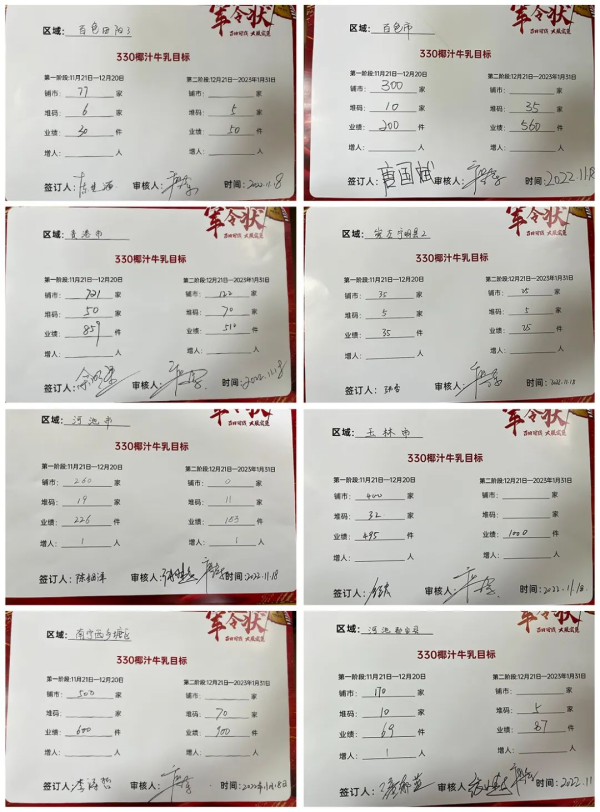 军令状
吉地时代 大展宏图
区域：百色田阳3
330椰汁牛乳目标
第一阶段:11月21日—12月20日 第二阶段:12月21日—2023年1月31日
铺市：77家 铺市：家
堆码：6家 堆码：5家
业绩：30件 业绩：50件
增人：人 增人：人
签订人： 审核人： 时间：2022.11.18
军令状
区域：百色市
330椰汁牛乳目标
第一阶段:11月21日—12月20日 第二阶段:12月21日—2023年1月31日
铺市：300家 铺市：家
堆码：10家 堆码：35家
业绩：200件 业绩：560件
增人：人 增人：人
签订人：唐国斌 审核人： 时间：2022.11.18
军令状
区域：贵港市
330椰汁牛乳目标
第一阶段:11月21日—12月20日 第二阶段:12月21日—2023年1月31日
铺市：721家 铺市：122家
堆码：50家 堆码：70家
业绩：859件 业绩：510件
增人：人 增人：人
签订人： 审核人： 时间：2022.11.18
军令状
区域：崇左宁明县2
330椰汁牛乳目标
第一阶段:11月21日—12月20日 第二阶段:12月21日—2023年1月31日
铺市：35家 铺市：25家
堆码：5家 堆码：5家
业绩：35件 业绩：25件
增人：人 增人：人
签订人： 审核人： 时间：2022.11.18
军令状
区域：河池市
330椰汁牛乳目标
第一阶段:11月21日—12月20日 第二阶段:12月21日—2023年1月31日
铺市：260家 铺市：0家
堆码：19家 堆码：11家
业绩：226件 业绩：183件
增人：1人 增人：1人
签订人： 审核人： 时间：2022.11.18
军令状
区域：玉林市
330椰汁牛乳目标
第一阶段:11月21日—12月20日 第二阶段:12月21日—2023年1月31日
铺市：400家 铺市：家
堆码：32家 堆码：家
业绩：495件 业绩：1000件
增人：人 增人：人
签订人： 审核人： 时间：2022.11.18
军令状
区域：南宁西乡塘区
330椰汁牛乳目标
第一阶段:11月21日—12月20日 第二阶段:12月21日—2023年1月31日
铺市：500家 铺市：家
堆码：家 堆码：70家
业绩：600件 业绩：900件
增人：人 增人：人
签订人： 审核人： 时间：2022年11月18日
军令状
区域：河池都安县
330椰汁牛乳目标
第一阶段:11月21日—12月20日 第二阶段:12月21日—2023年1月31日
铺市：170家 铺市：家
堆码：10家 堆码：5家
业绩：69件 业绩：87件
增人：1人 增人：人
签订人： 审核人： 时间：2022.11